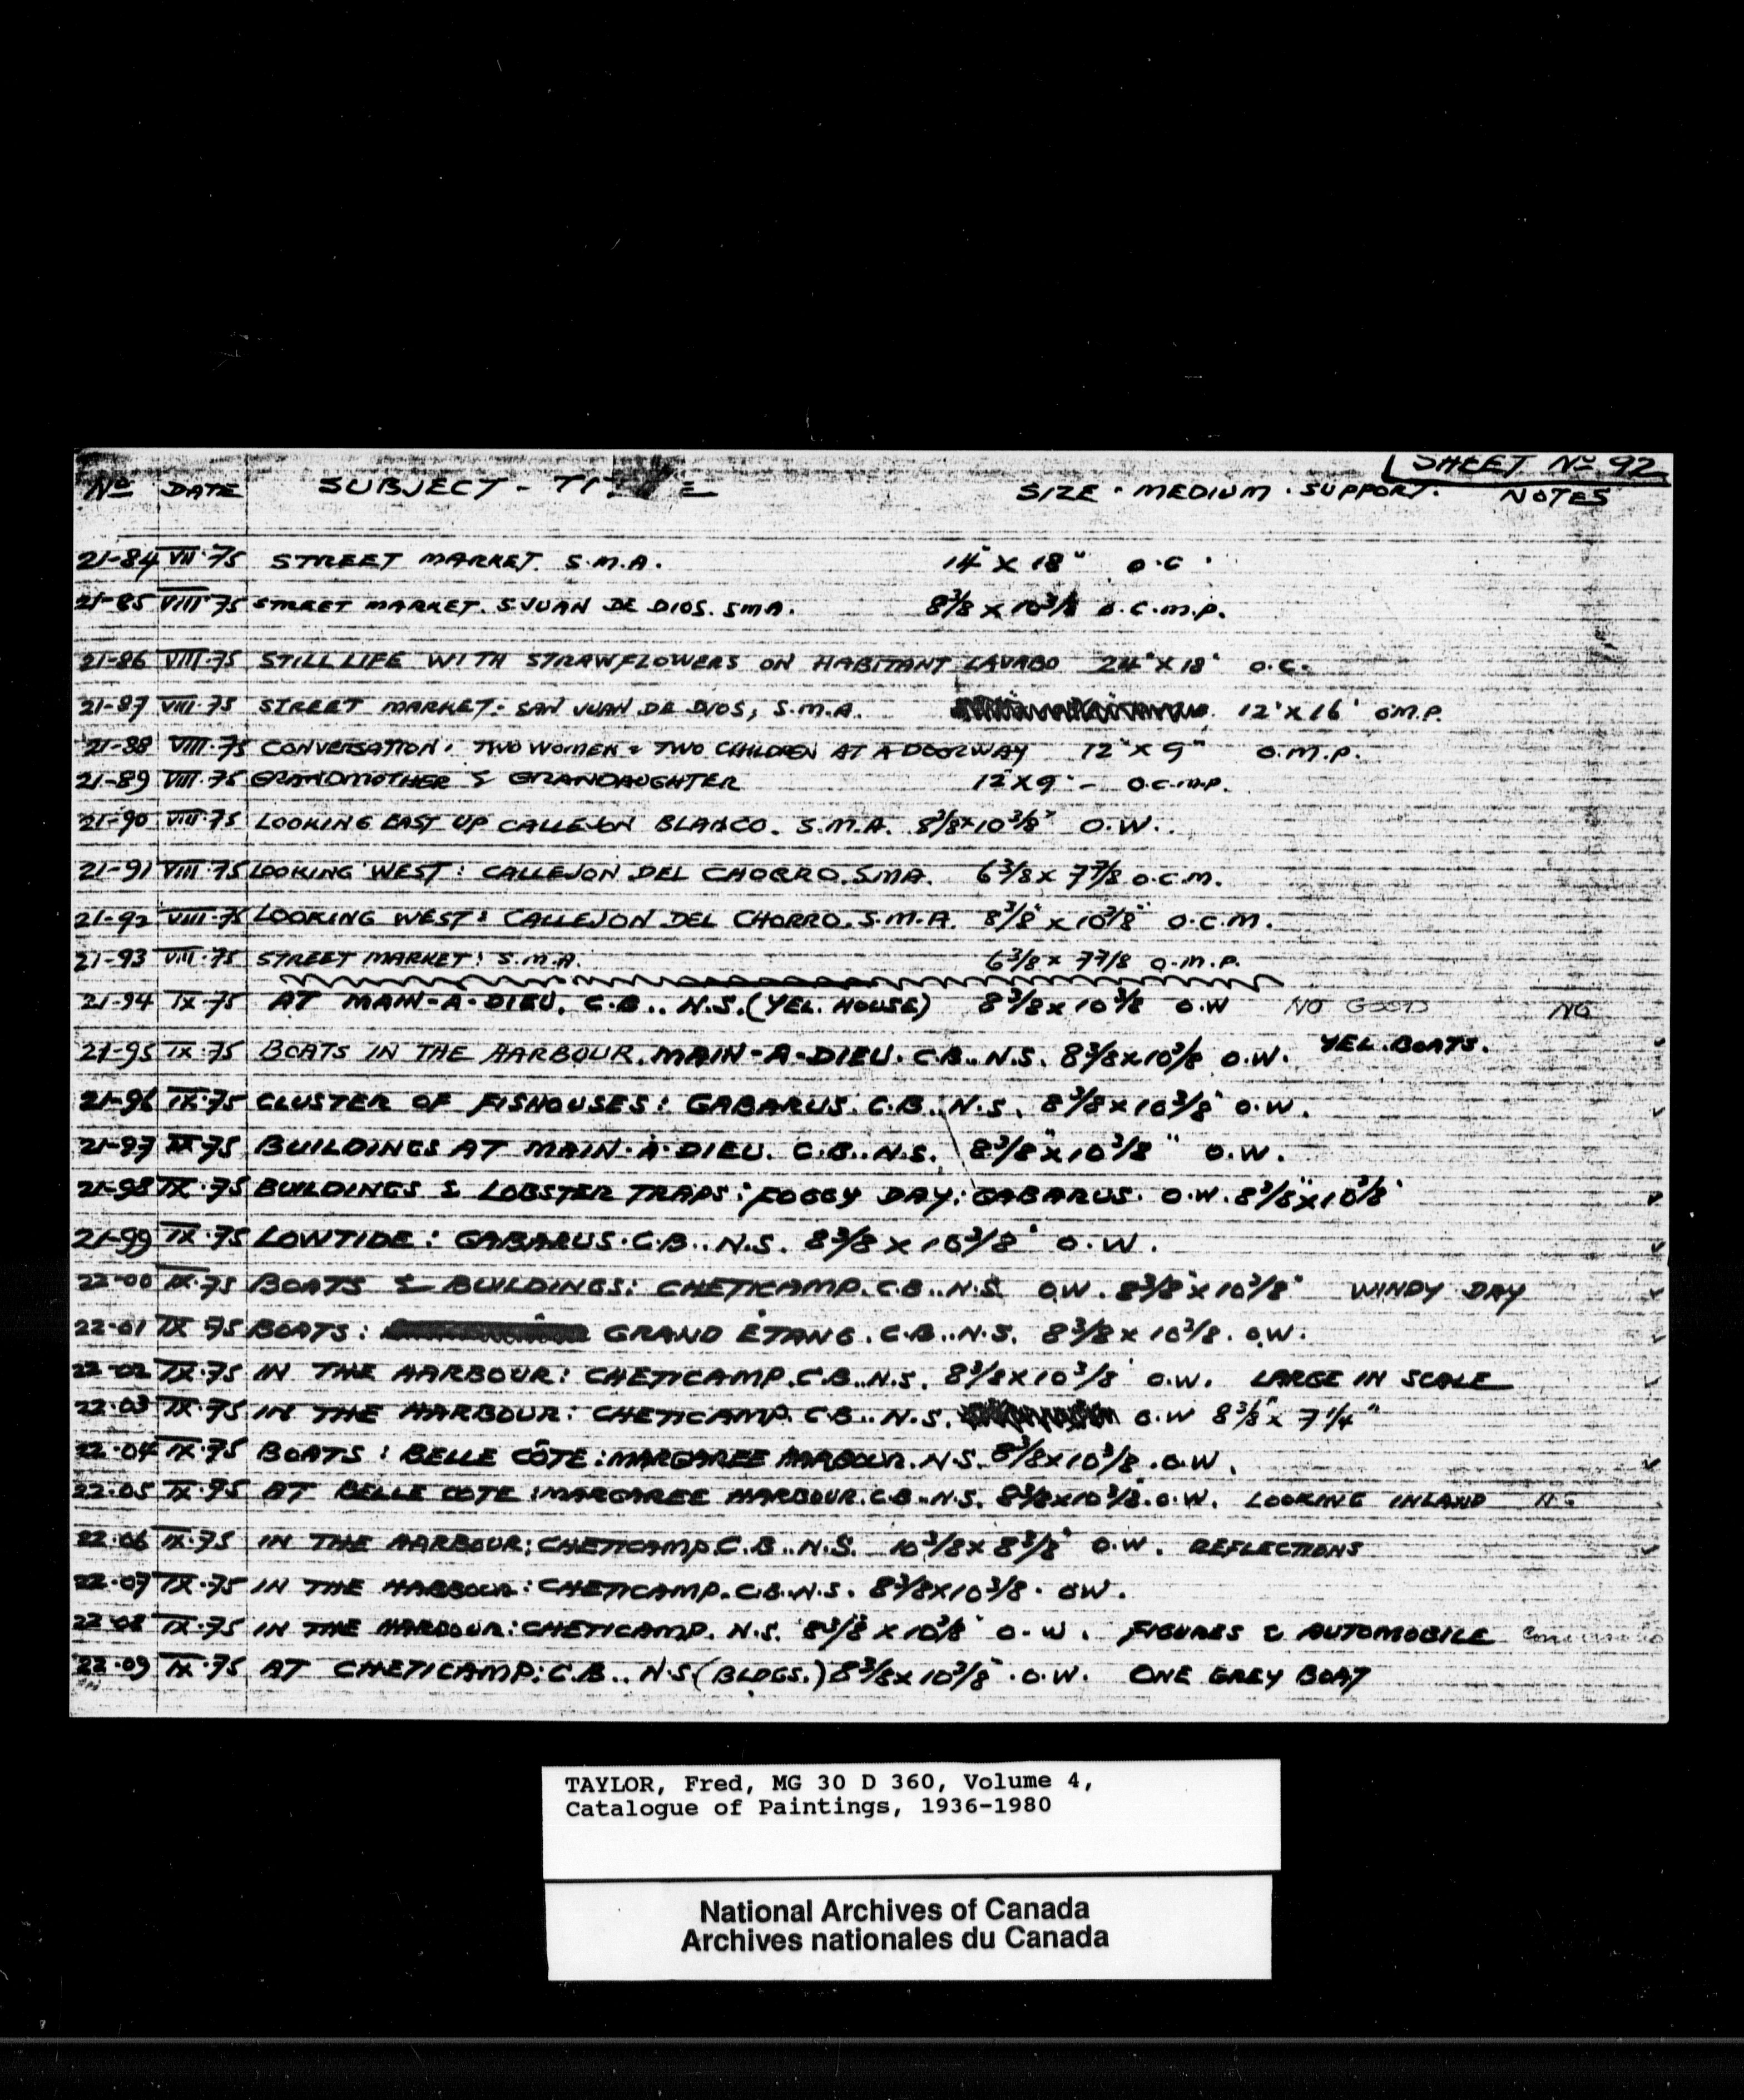 SHEET Nº 92
Nº DATE SUBJECT - SIZE · MEDIUM · SUPPORT. NOTES
21-84 VII·75 STREET MARKET. S.M.A. 14" X 18" O.C.
21-85 VIII·75 STREET MARKET. S.JUAN DE DIOS. SMA. 8 3/8 X 10 3/8 O.C.M.P.
21-86 VIII·75 STILL LIFE WITH STRAWFLOWERS ON HABITANT LAVABO 24" X 18" O.C.
21-87 VIII·75 STREET MARKET: SAN JUAN DE DIOS, S.M.A. 12" X 16" O.M.P.
21-88 VIII·75 CONVERSATION: TWO WOMEN & TWO CHILDREN AT A DOORWAY 12" X 9" O.M.P.
21-89 VIII·75 GRANDMOTHER & GRANDAUGHTER 12 X 9" - O.C.M.P.
21-90 VIII·75 LOOKING EAST UP CALLEJON BLANCO. S.M.A. 8 3/8 X 10 3/8" O.W.
21-91 VIII·75 LOOKING WEST: CALLEJON DEL CHORRO. SMA. 6 3/8 X 7 7/8 O.C.M.
21-92 VIII·75 LOOKING WEST: CALLEJON DEL CHORRO. S.M.A. 8 3/8" X 10 3/8" O.C.M.
21-93 VIII·75 STREET MARKET: S.M.A. 6 3/8 X 7 7/8 O.M.P.
21-94 IX·75 AT MAIN-A-DIEU, C.B.. N.S. (YEL. HOUSE) 8 3/8 X 10 3/8 O.W NO GOOD NG
21-95 IX·75 BOATS IN THE HARBOUR. MAIN-A-DIEU. C.B.. N.S. 8 3/8 X 10 3/8 O.W. YEL. BOATS. ✓
21-96 IX·75 CLUSTER OF FISHOUSES: GABARUS. C.B.. N.S. 8 3/8 X 10 3/8" O.W. ✓
21-97 IX·75 BUILDINGS AT MAIN·À·DIEU. C.B.. N.S. 8 3/8" X 10 3/8" O.W.
21-98 IX·75 BUILDINGS & LOBSTER TRAPS: FOGGY DAY: GABARUS. O.W. 8 3/8" X 10 3/8" ✓
21-99 IX·75 LOWTIDE: GABARUS. C.B.. N.S. 8 3/8 X 10 3/8" O.W. ✓
22-00 IX·75 BOATS & BUILDINGS: CHETICAMP. C.B.. N.S. O.W. 8 3/8" X 10 3/8" WINDY DAY ✓
22-01 IX 75 BOATS: GRAND ÉTANG. C.B.. N.S. 8 3/8 X 10 3/8. O.W. ✓
22-02 IX·75 IN THE HARBOUR: CHETICAMP. C.B.. N.S. 8 3/8 X 10 3/8" O.W. LARGE IN SCALE ✓
22·03 IX·75 IN THE HARBOUR: CHETICAMP. C.B.. N.S. O.W 8 3/8" X 7 1/4"
22·04 IX·75 BOATS: BELLE CÔTE: MARGAREE HARBOUR. N.S. 8 3/8 X 10 3/8. O.W. ✓
22·05 IX·75 AT BELLE COTE: MARGAREE HARBOUR. C.B.. N.S. 8 3/8 X 10 3/8". O.W. LOOKING INLAND N.G
22·06 IX·75 IN THE HARBOUR; CHETICAMP. C.B.. N.S. 10 3/8 X 8 3/8" O.W. REFLECTIONS ✓
22·07 IX·75 IN THE HARBOUR: CHETICAMP. C.B. N.S. 8 3/8 X 10 3/8. OW.
22·08 IX·75 IN THE HARBOUR: CHETICAMP. N.S. 8 3/8" X 10 3/8" O.W. FIGURES & AUTOMOBILE
22·09 IX·75 AT CHETICAMP: C.B.. N.S (BLDGS.) 8 3/8 X 10 3/8". O.W. ONE GREY BOAT
TAYLOR, Fred, MG 30 D 360, Volume 4,
Catalogue of Paintings, 1936-1980
National Archives of Canada
Archives nationales du Canada